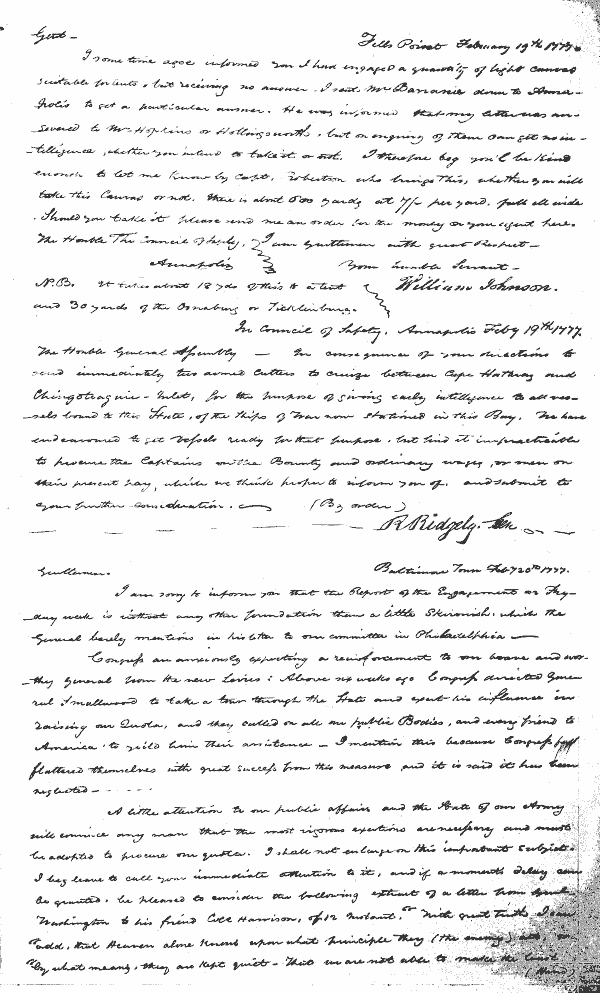 Gent -
Fells Point February 19th 1777.
I some time agoe informed you I had engaged a quantity of light canvas
suitable for tents, but receiving no answer. I sent Mr Barrance down to Anna-
-polis to get a particular answer. He was informed that my letter was an-
-swered to Mr Hopkins or Hollingsworth, but on enquiry of them can get no in-
-telligence, whether you intend to take it or not. I therefore beg you'll be kind
enough to let me know by Capt. Robertson who brings this, whether you will
take this Canvas or not. there is about 600 yards at 7/ per yard. full ell wide
Should you take it please send me an order for the money on your agent here.
The Honble The Council of Safety. I am Gentlemen with great Respect -
Annapolis Your humble Servant -
N.B. It takes about 18 yds of this to a tent William Johnson.
and 30 yards of the Osnaburg or Ticklenburg.
In Council of Safety, Annapolis Feby 19th 1777.
The Honble General Assembly - In consequence of your directions to
send immediately two armed Cutters to cruize between Cape Hatteras and
Chingoteague - Inlet, for the purpose of giving early intelligence to all ves-
-sels bound to this State, of the Ships of War now stationed in this Bay. We have
endeavoured to get Vessels ready for that purpose, but find it impracticable
to procure the Captains on the Bounty and ordinary wages, or men on
their present pay, which we think proper to inform you of. and submit to
your further consideration. (By order)
R Ridgely. Clk
Gentlemen. Baltimore Town Feby 20th 1777.
I am sorry to inform you that the Report of the Engagement on
-day week is without any other foundation than a little Skirmish. which the
General barely mentions in his letter to our committee in Philadelphia -
Congress are anxiously expecting a reinforcement to our brave and wor-
-thy General from the new Levies: Above six weeks ago Congress directed Gene-
ral Smallwood to take a tour through the State and exert his influence in
raising our Quota, and they called on all our public Bodies, and every friend to
America to yield him their assistance - I mention this because Congress
flattered themselves with great success from this measure and it is said it has been
neglected - - - -
A little attention to our public affairs and the State of our Army
will convince any man that the most vigorous exertions are necessary and must
be adopted to procure our quota. I shall not enlarge on this important subject.
I beg leave to call your immediate attention to it, and if a moments delay can
be granted. be pleased to consider the following extract of a letter from Genl
Washington to his friend Coll Harrison, of 12 Instant, "With great truth I can
"add, that Heaven alone knows upon what principle they (the enemy) act, or
"by what means, they are kept quiet - That we are not able to make the least